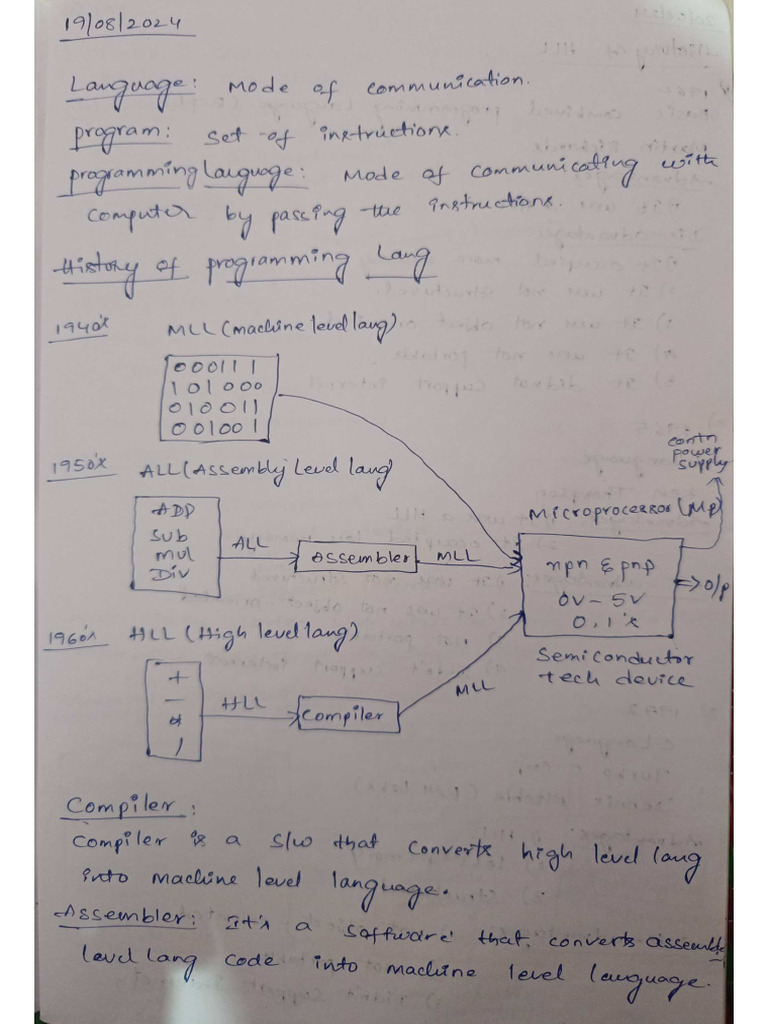 19/08/2024
Language: Mode of communication.
program: set of instructions.
programming Language: Mode of communicating with
computer by passing the instructions.
History of programming Lang
1940's MLL (machine level lang)
000111
101000
010011
001001
contn
power
supply
1950's ALL (Assembly Level lang)
Microprocessor (Mp)
ADD
Sub
mul
Div
ALL
Assembler
MLL
npn & pnp
0V - 5V
0,1's
O/p
Semiconductor
tech device
1960's HLL (High level lang)
+
-
*
/
HLL
Compiler
MLL
Compiler:
Compiler is a S/w that converts high level lang
into machine level language.
Assembler: It's a software that converts assemble
level lang code into machine level language.